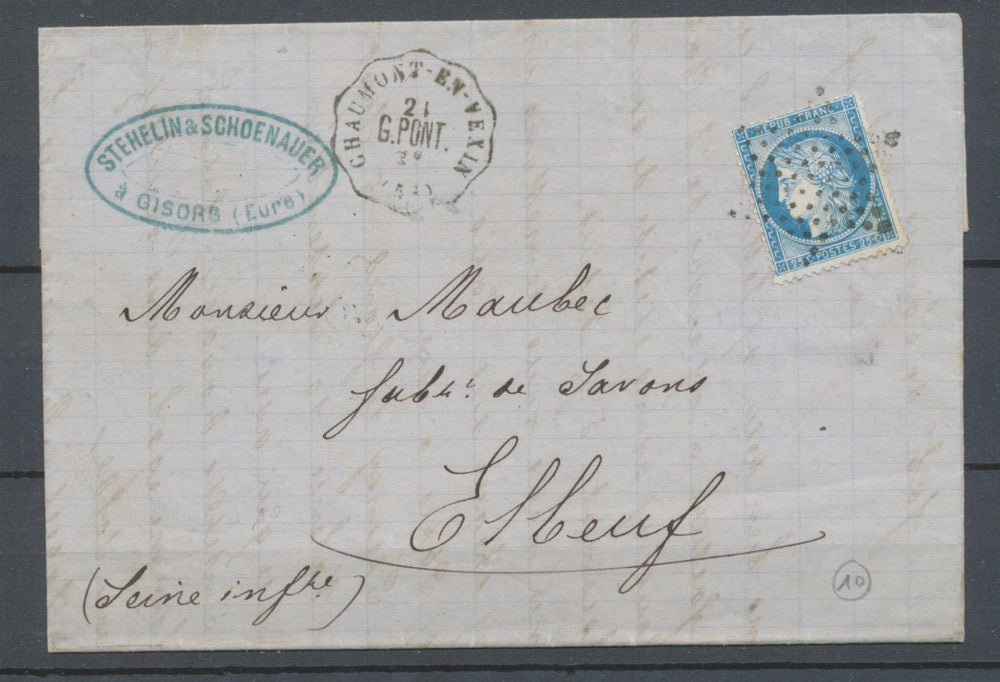 STEHELIN & SCHOENAUER
à GISORS (Eure)
CHAUMONT-EN-VEXIN
21
G.PONT.
REPUB. FRANC.
25 C. POSTES 25 C.
Monsieur Maubec
fabt. de Savons
Elbeuf
(Seine infre)
10